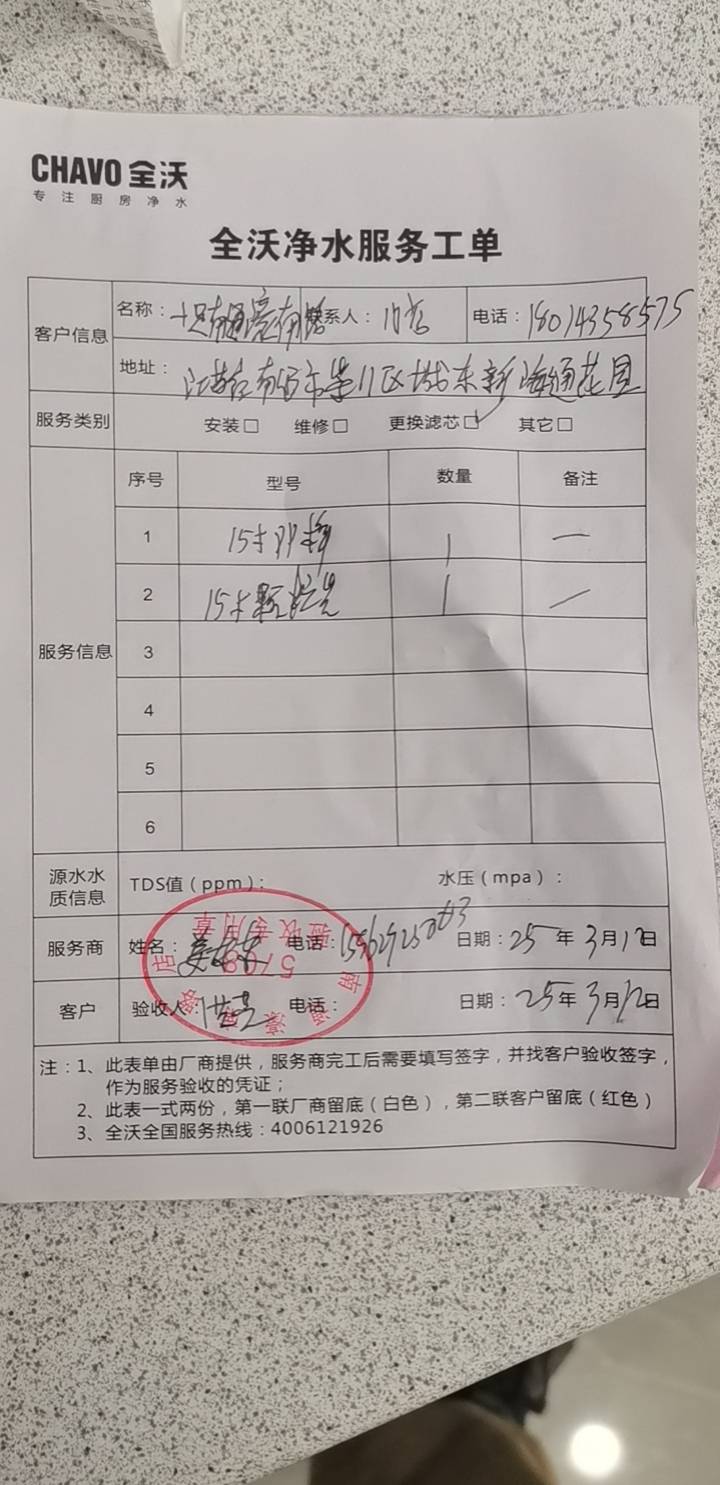 CHAVO 全沃
专注厨房净水
全沃净水服务工单
客户信息
名称： 联系人： 电话：18014358575
地址：
服务类别 安装□ 维修□ 更换滤芯□✓ 其它□
服务信息
序号 型号 数量 备注
1 15寸PP棉 1 —
2 15寸颗粒炭 1 —
3
4
5
6
源水水质信息 TDS值（ppm）： 水压（mpa）：
服务商 姓名： 电话： 日期：25年3月12日
客户 验收人： 电话： 日期：25年3月12日
验收专用章
5798
注：1、此表单由厂商提供，服务商完工后需要填写签字，并找客户验收签字，
作为服务验收的凭证；
2、此表一式两份，第一联厂商留底（白色），第二联客户留底（红色）
3、全沃全国服务热线：4006121926